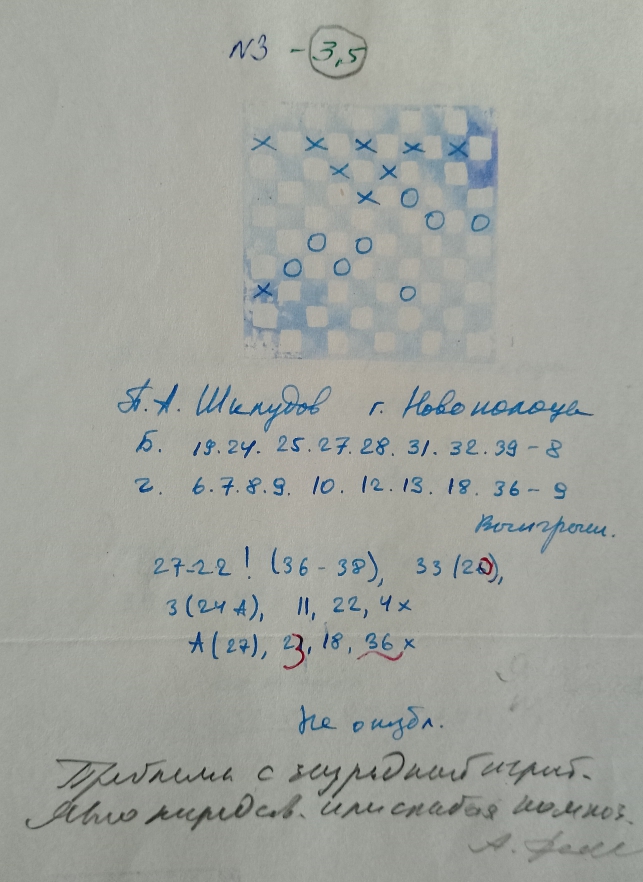 N3 - 3,5
П. А. Шклудов г. Новополоцк
Б. 19. 24. 25. 27. 28. 31. 32. 39 - 8
Ч. 6. 7. 8. 9. 10. 12. 13. 18. 36 - 9
Выигрыш.
27-22! (36-38), 33 (20),
3 (24 А), 11, 22, 4x
А (27), 23, 18, 36 x
Не опубл.
Проблема с